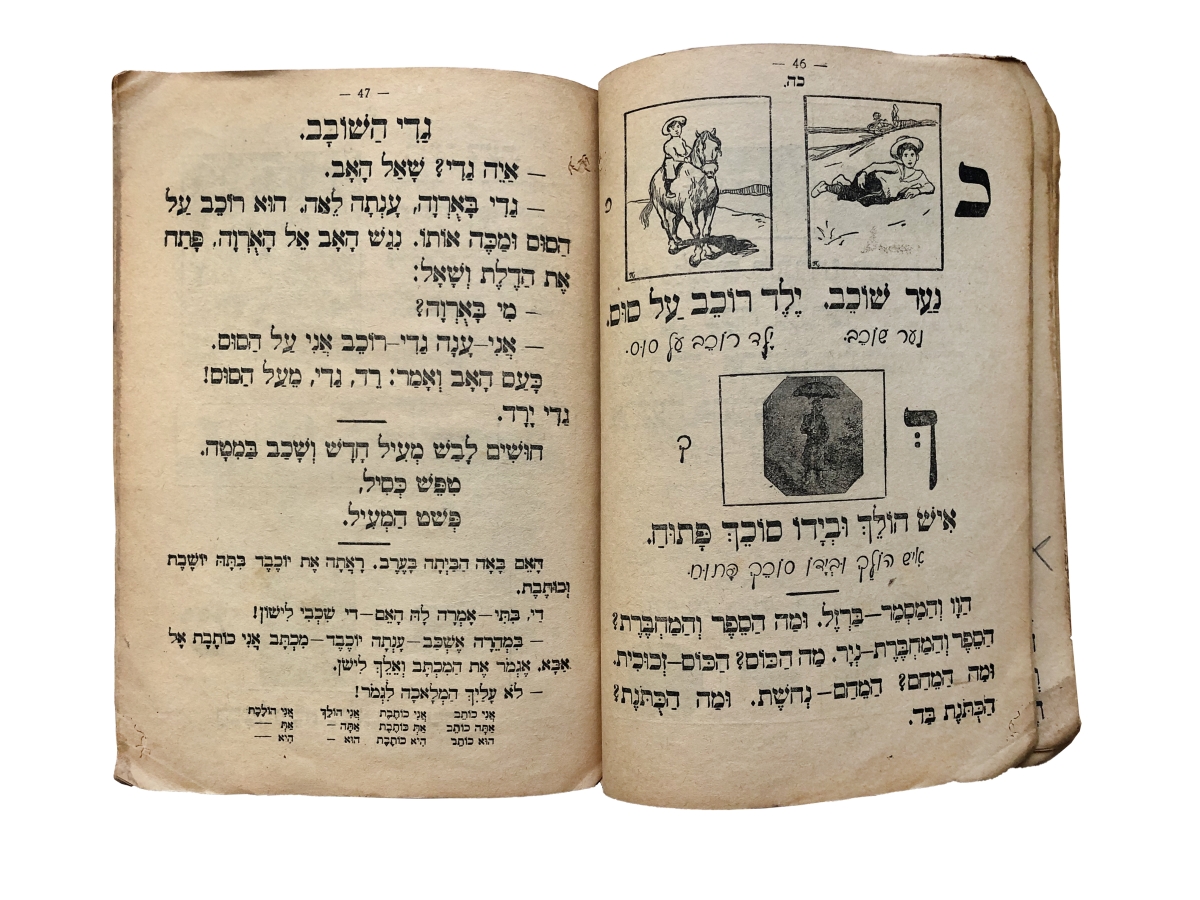 — 46 —
כה.
כ
נַעַר שׁוֹכֵב. יֶלֶד רוֹכֵב עַל סוּס.
נַעַר שׁוֹכֵב. יֶלֶד רוֹכֵב עַל סוּס.
ךְ
ך
אִישׁ הוֹלֵךְ וּבְיָדוֹ סוֹכֵךְ פָּתוּחַ.
אִישׁ הוֹלֵךְ וּבְיָדוֹ סוֹכֵךְ פָּתוּחַ.
הַוָּו וְהַמַּסְמֵר–בַּרְזֶל. וּמַה הַסֵּפֶר וְהַמַּחְבֶּרֶת?
הַסֵּפֶר וְהַמַּחְבֶּרֶת–נְיָר. מַה הַכּוֹס? הַכּוֹס–זְכוּכִית.
וּמַה הַמֵּחַם? הַמֵּחַם–נְחשֶׁת. וּמַה הַכֻּתֹּנֶת?
הַכֻּתֹּנֶת בַּד.
— 47 —
גַּדִּי הַשּׁוֹבָב.
— אַיֵּה גַדִּי? שָׁאַל הָאָב.
— גַּדִּי בָּאֻרְוָה, עָנְתָה לֵאָה. הוּא רוֹכֵב עַל
הַסּוּס וּמַכֶּה אוֹתוֹ. נִגַּשׁ הָאָב אֶל הָאֻרְוָה, פָּתַח
אֶת הַדֶּלֶת וְשָׁאַל:
— מִי בָּאֻרְוָה?
— אֲנִי–עָנָה גַדִּי–רוֹכֵב אֲנִי עַל הַסּוּס.
כָּעַס הָאָב וְאָמַר: רֵד, גַּדִּי, מֵעַל הַסּוּס!
גַּדִּי יָרָד.
חוּשִׁים לָבַשׁ מְעִיל חָדָשׁ וְשָׁכַב בַּמִּטָּה.
טִפֵּשׁ כְּסִיל,
פְּשֹׁט הַמְּעִיל.
הָאֵם בָּאָה הַבַּיְתָה בָּעֶרֶב. רָאֲתָה אֶת יוֹכֶבֶד בִּתָּהּ יוֹשֶׁבֶת
וְכוֹתֶבֶת.
דַּי, בִּתִּי–אָמְרָה לָהּ הָאֵם–דַּי שִׁכְבִי לִישׁוֹן!
— בִּמְהֵרָה אֶשְׁכַּב–עָנְתָה יוֹכֶבֶד–מִכְתָּב אֲנִי כוֹתֶבֶת אֶל
אַבָּא. אֶגְמֹר אֶת הַמִּכְתָּב וְאֵלֵךְ לִישֹׁן.
— לֹא עָלַיִךְ הַמְּלָאכָה לִגְמֹר!
אֲנִי כוֹתֵב אֲנִי כוֹתֶבֶת אֲנִי הוֹלֵךְ אֲנִי הוֹלֶכֶת
אַתָּה כוֹתֵב אַתְּ כּוֹתֶבֶת אַתָּה — אַתְּ —
הוּא כוֹתֵב הִיא כוֹתֶבֶת הוּא — הִיא —